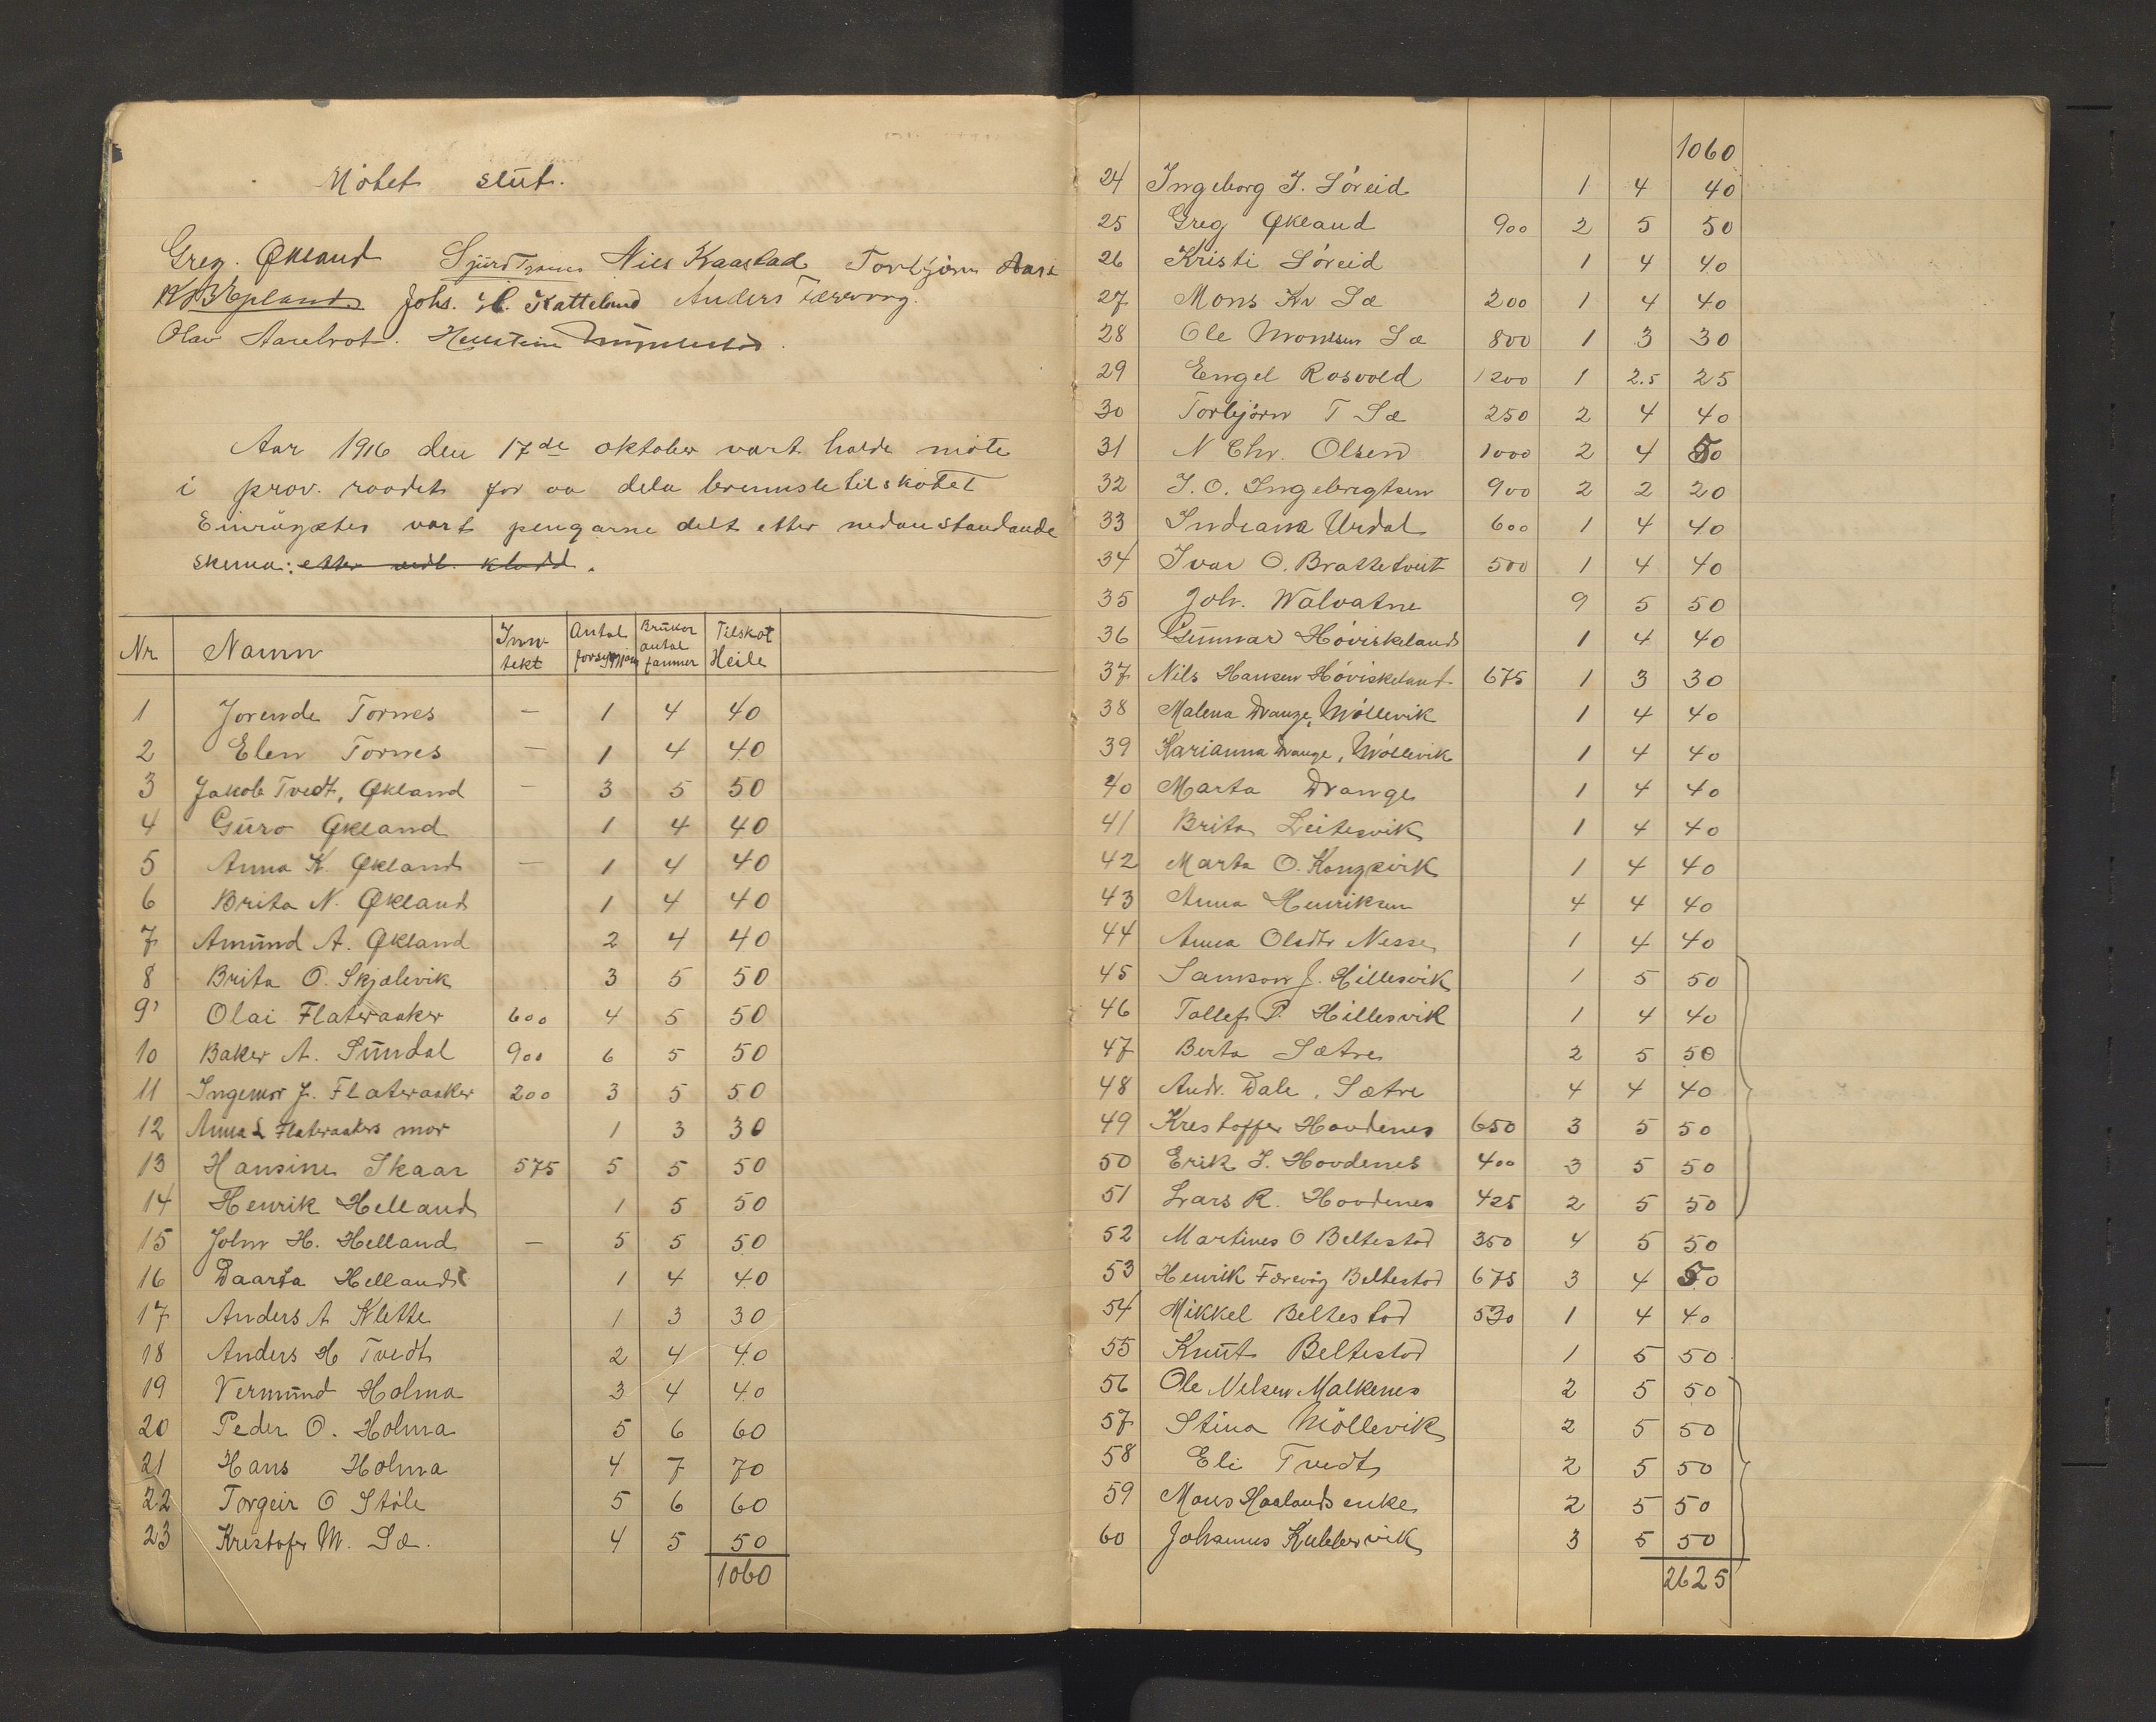 Mötet slut.
Greg. Økland Sjurd Nils Kaastad Torbjörn
Johs. H. Kattelund Anders Færevaag.
Olav Aarebrot. Hellstein
Aar 1916 den 17de oktober vart halde möte
i prov. raadet for aa dela brennsletilskotet
Einrögstes vart pengarne delt etter nedanstandande
skema: etter vedl. kladd.
Nr Namn Inntekt Antal forsyrgjing Brukar antal famner Tilskot Heile
1 Jorende Tornes — 1 4 40
2 Elen Tornes — 1 4 40
3 Jakob Tvedt, Økland — 3 5 50
4 Guro Økland 1 4 40
5 Anna K. Økland — 1 4 40
6 Brita N. Økland 1 4 40
7 Amund A. Økland 2 4 40
8 Brita O. Skjælevik 3 5 50
9 Olai Flateraaker 600 4 5 50
10 Baker A. Sundal 900 6 5 50
11 Ingemor J. Flateraaker 200 3 5 50
12 Anna L Flateraakers mor 1 3 30
13 Hansine Skaar 575 5 5 50
14 Henrik Helland 1 5 50
15 John H. Helland — 5 5 50
16 Daarta Helland 1 4 40
17 Anders A Klette 1 3 30
18 Anders H Tvedt 2 4 40
19 Vermund Holma 3 4 40
20 Peder O. Holma 5 6 60
21 Hans Holma 4 7 70
22 Torgeir O Stöle 5 6 60
23 Kristofer M. Sæ. 4 5 50
1060
1060
24 Ingeborg J. Söreid 1 4 40
25 Greg Økland 900 2 5 50
26 Kristi Söreid 1 4 40
27 Mons Kr Sæ 200 1 4 40
28 Ole Monsen Sæ 800 1 3 30
29 Engel Rosvold 1200 1 2.5 25
30 Torbjörn T Sæ 250 2 4 40
31 N Chr. Olsen 1000 2 4 50
32 J. O. Ingebrigtsen 900 2 2 20
33 Indiana Urdal 600 1 4 40
34 Ivar O. Brattetveit 500 1 4 40
35 Joh. Walvatne 9 5 50
36 Gunnar Höviskeland 1 4 40
37 Nils Hansen Höviskeland 675 1 3 30
38 Malena Drange, Möllevik 1 4 40
39 Karianna Drange, Möllevik 1 4 40
40 Marta Drange 1 4 40
41 Brita Leitesvik 1 4 40
42 Marta O. Kongsvik 1 4 40
43 Anna Henriksen 4 4 40
44 Anna Olsdtr Nesse 1 4 40
45 Samson J. Hillesvik 1 5 50
46 Tollef P. Hillesvik 1 4 40
47 Berta Sætre 2 5 50
48 Andr. Dale, Sætre 4 4 40
49 Krestoffer Hovdenes 650 3 5 50
50 Erik J. Hovdenes 400 3 5 50
51 Lars R. Hovdenes 425 2 5 50
52 Martines O Beltestad 350 4 5 50
53 Henrik Færevåg Beltestad 675 3 4 50
54 Mikkel Beltestad 530 1 4 40
55 Knut Beltestad 1 5 50
56 Ole Nelsen Malkenes 2 5 50
57 Stina Möllevik 2 5 50
58 Eli Tvedt 2 5 50
59 Mons Haalands enke 2 5 50
60 Johannes Kubbervik 3 5 50
2625